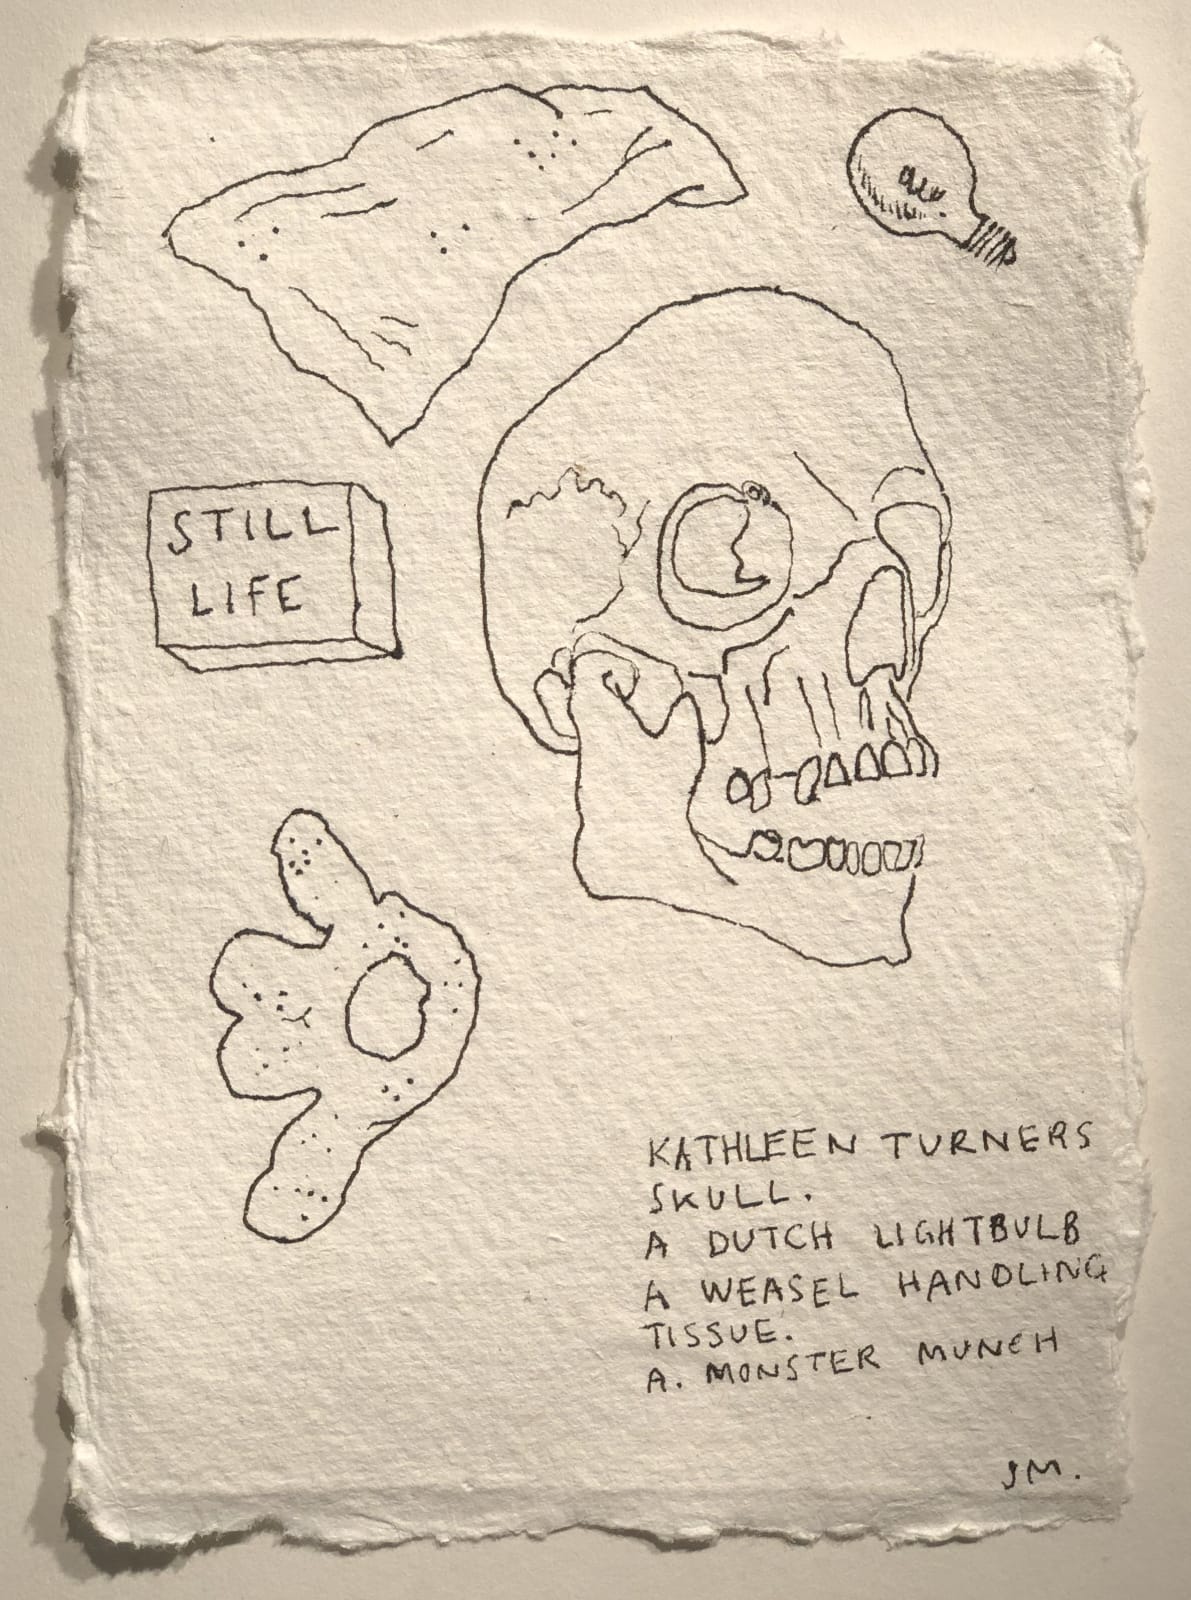 STILL
LIFE
KATHLEEN TURNERS
SKULL.
A DUTCH LIGHTBULB
A WEASEL HANDLING
TISSUE.
A. MONSTER MUNCH
JM.